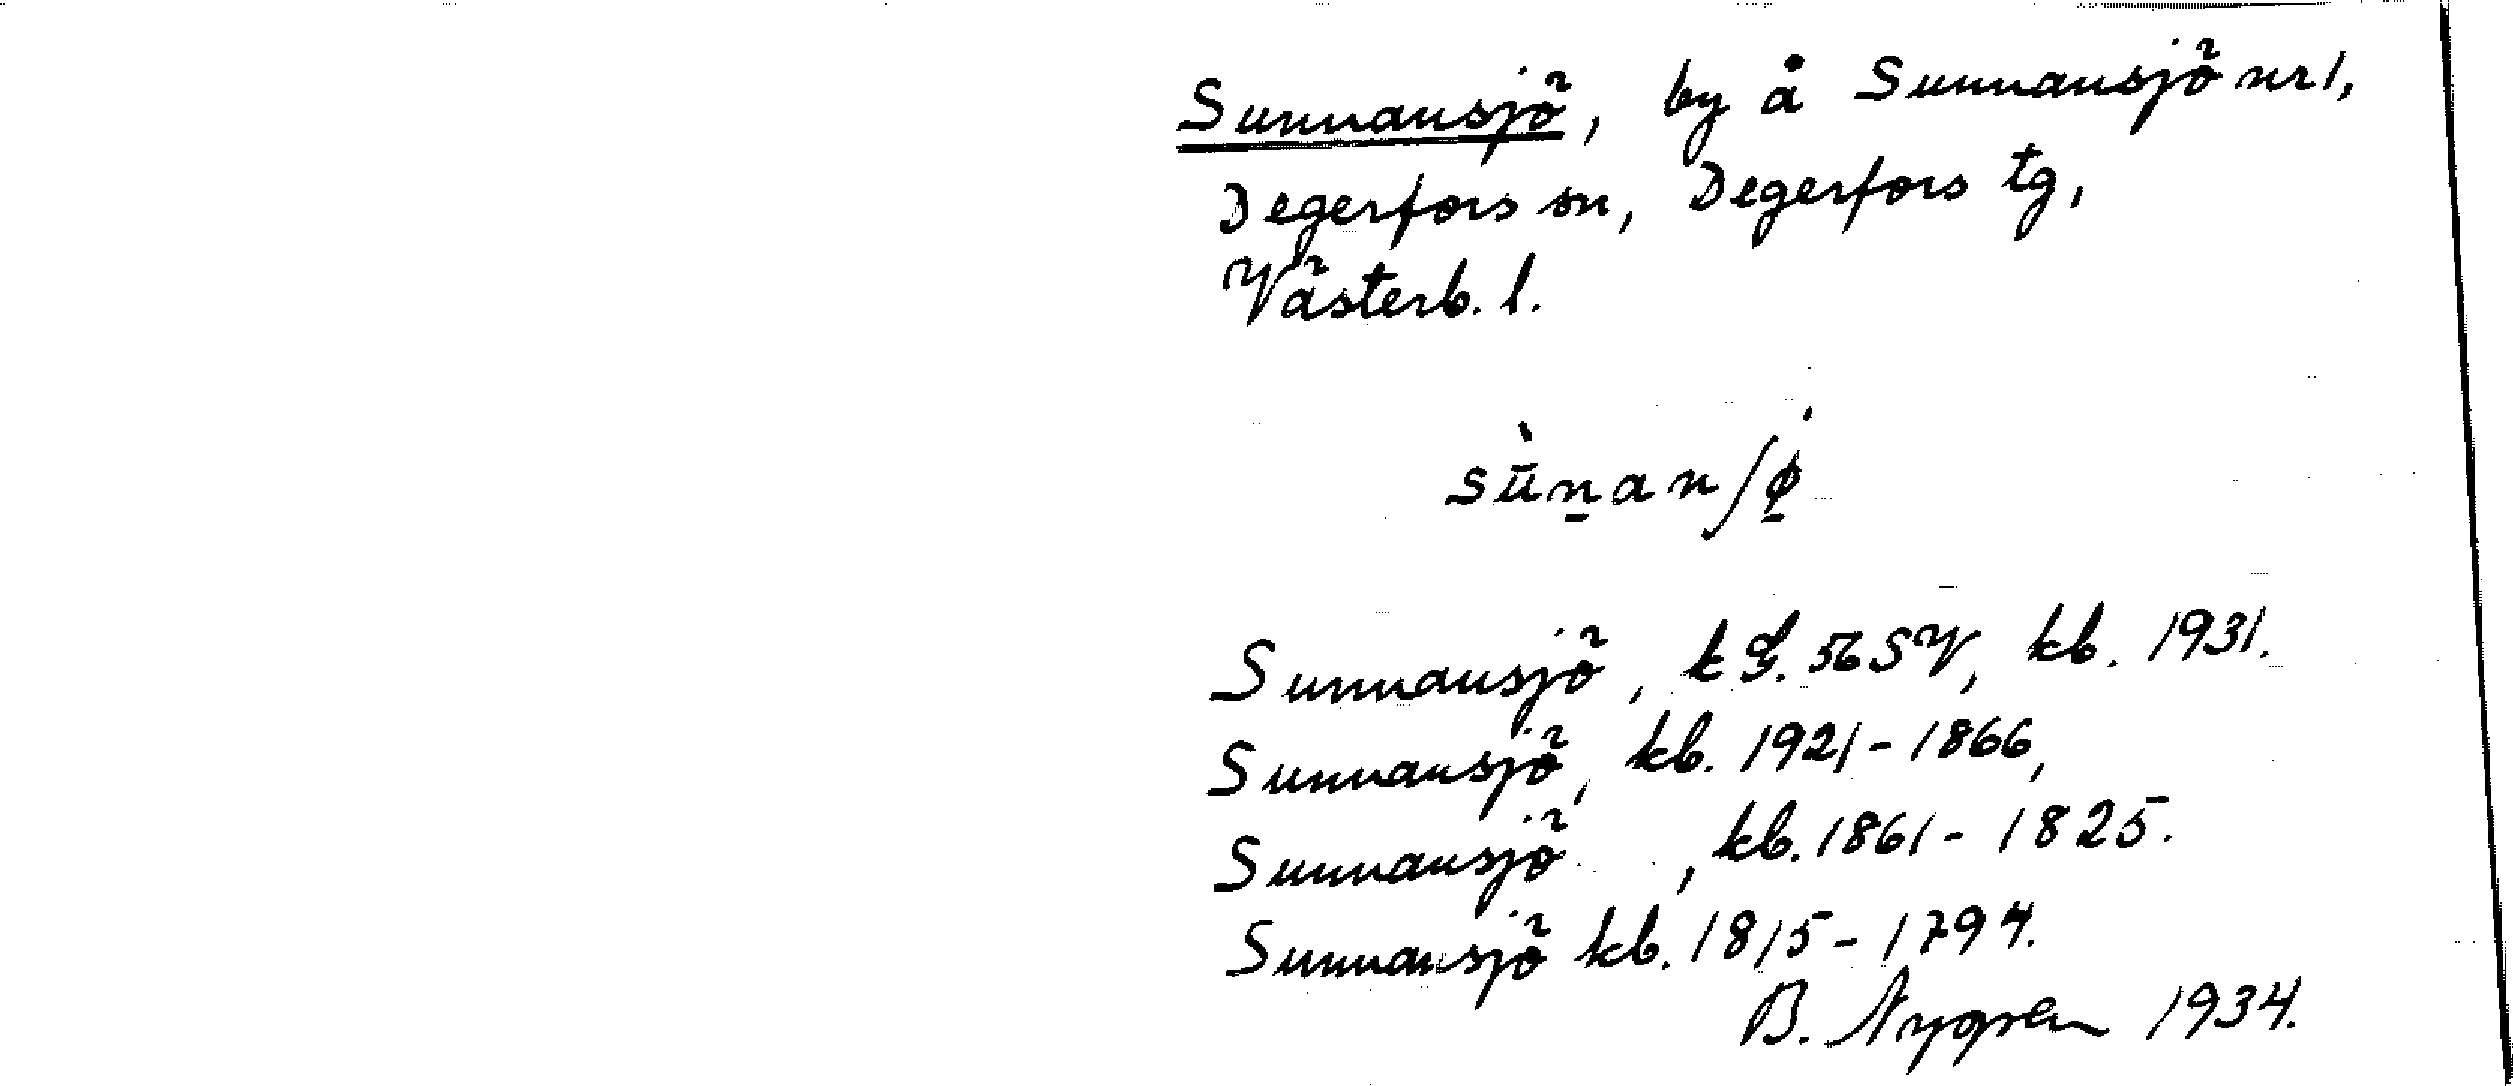 Sunnansjö, by å Sunnansjö nr 1,
Degerfors sn, Degerfors tg,
Västerb. l.
Sunnansjö, k G. 56 SV, kb. 1931.
Sunnansjö, kb. 1921-1866,
Sunnansjö , kb. 1861-1825.
Sunnansjö kb. 1815-1794.
B. Nygren 1934.